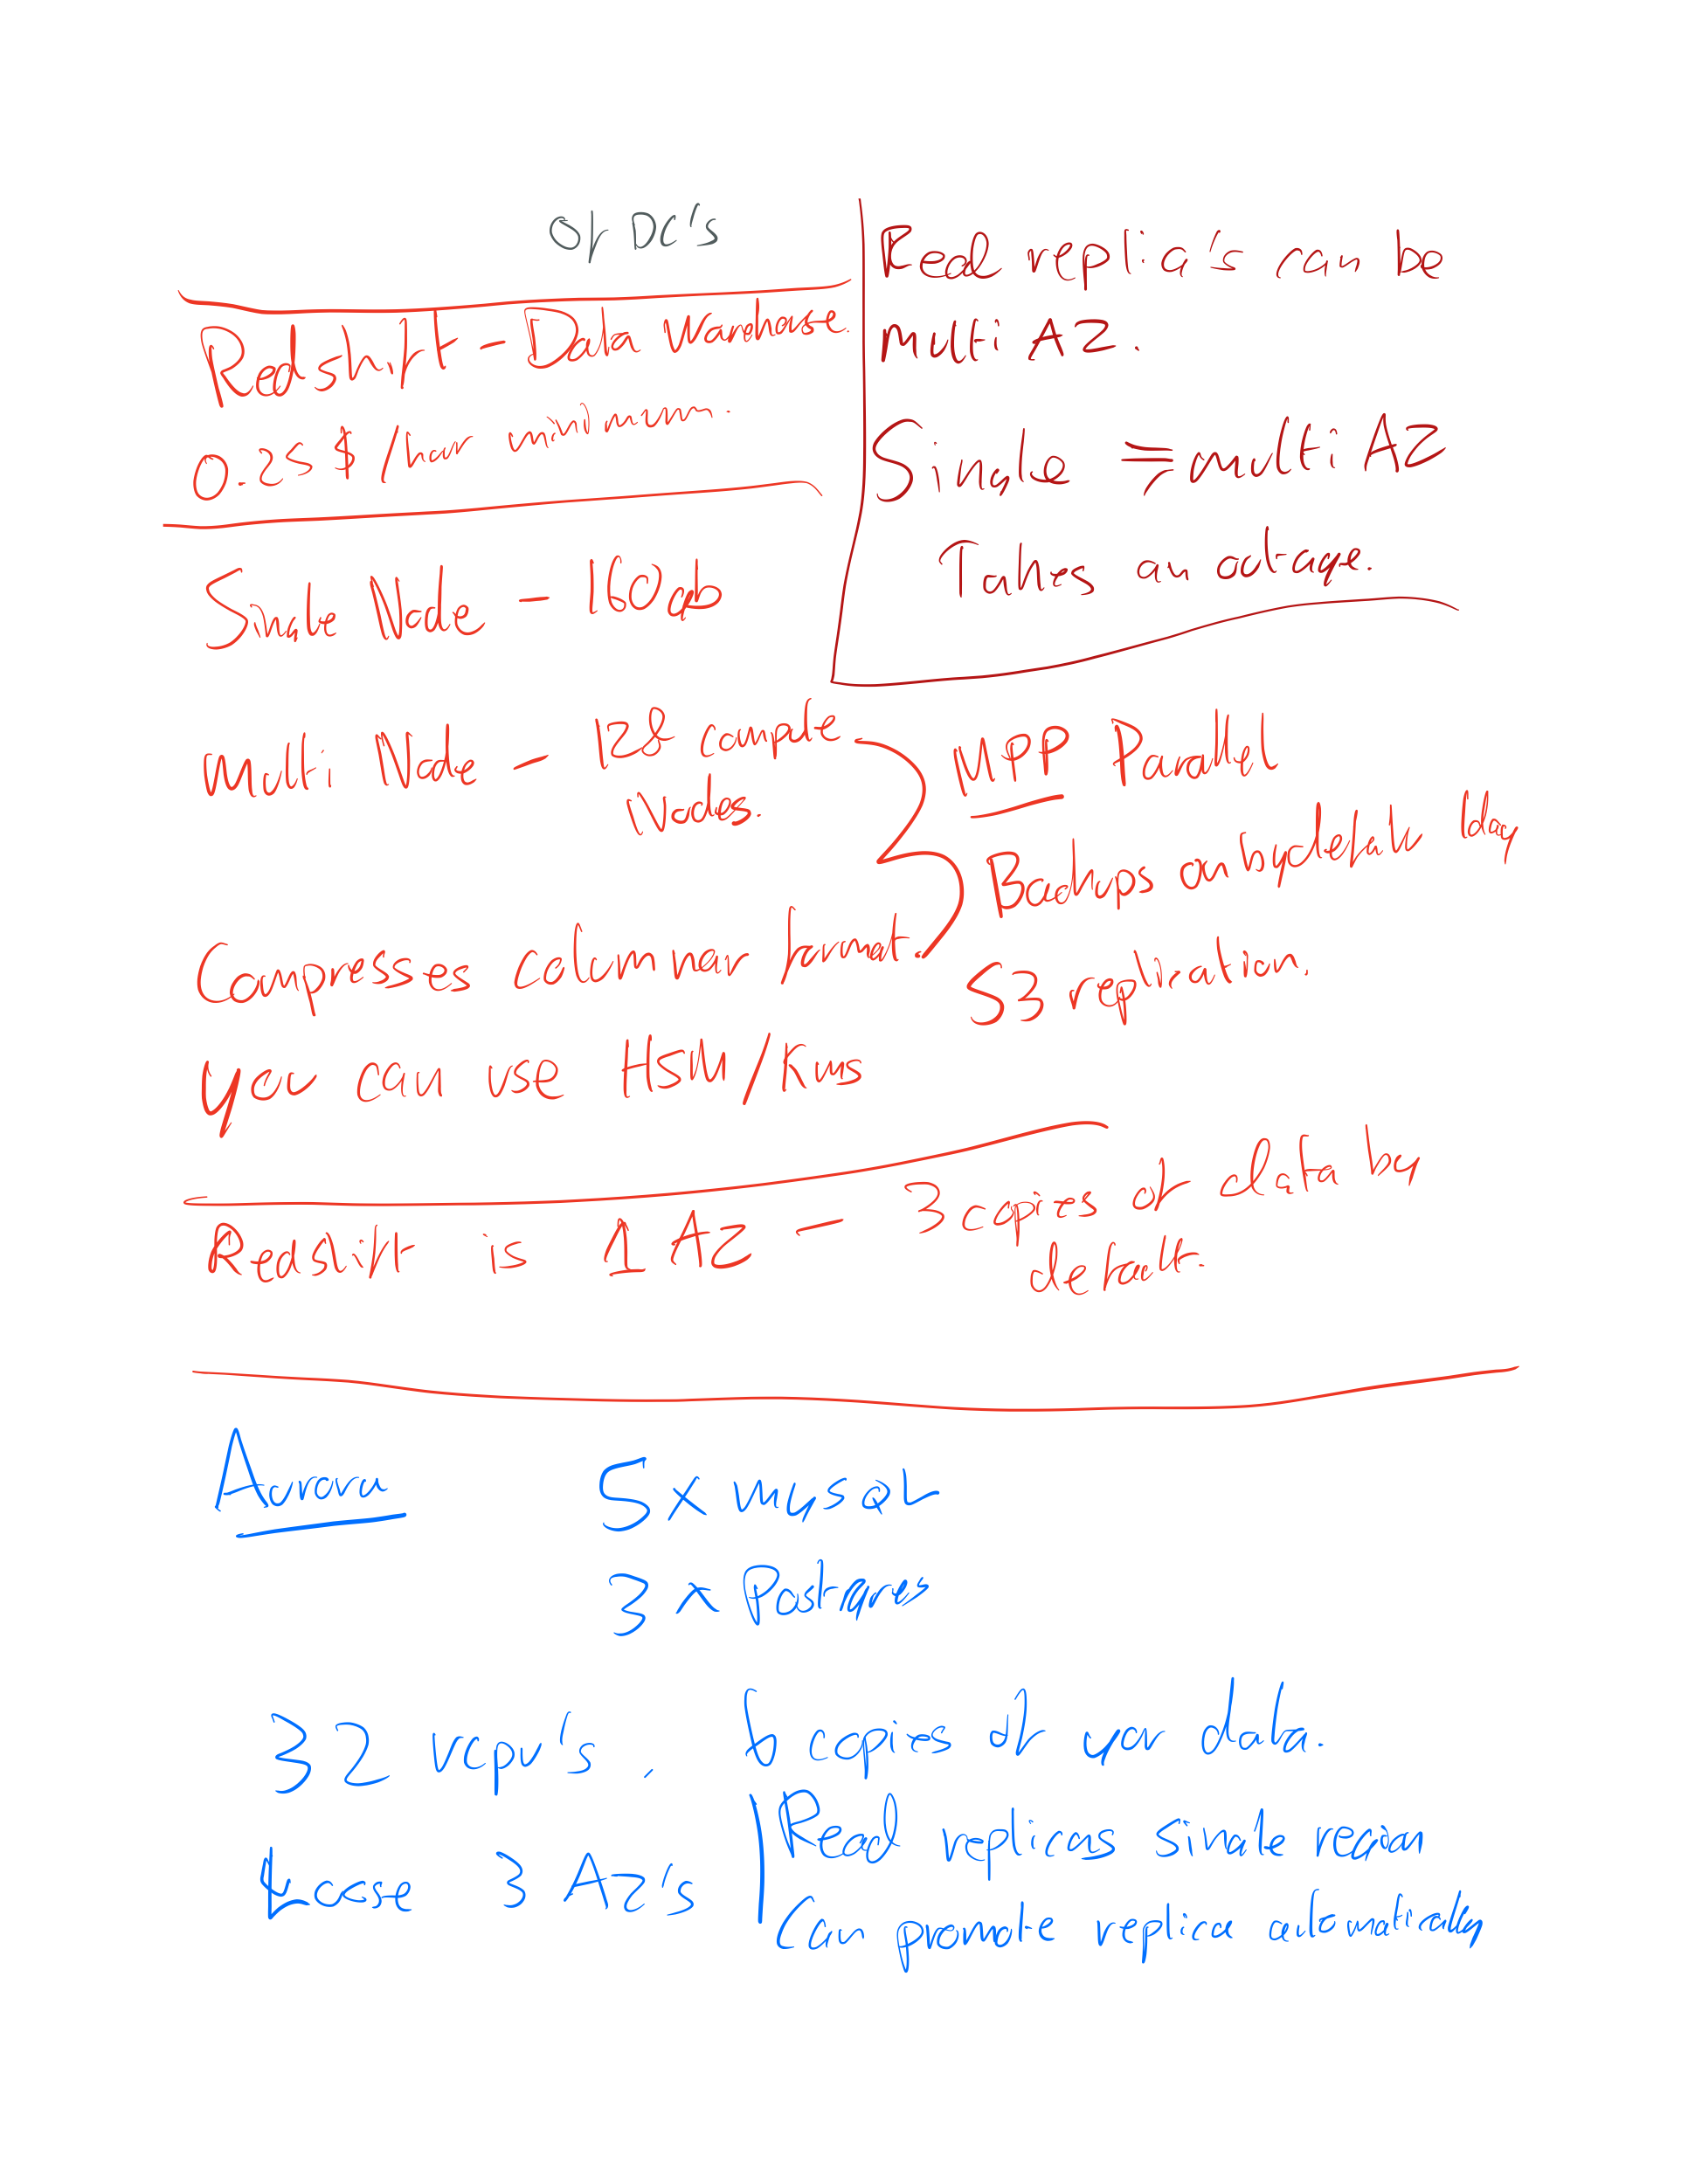 of DC's
Redshift - Data Warehouse.
0.25 $ /hour minimum.
Single Node - 160gb
Read replica's can be
multi AZ.
Single => multi AZ
Takes an outage.
Multi Node - 128 compute
Nodes.
Compresses columnar format.
MPP Parallel
Backups on by default 1day
S3 replication.
you can use HSM/Kms
Redshift is 1 AZ - 3 copies of data by
default.
Aurora
5 x mysqL
3 x Postgres
32 vcpu's. 6 copies of your data.
3 AZ's
Read replicas single region
Can promote replica automatically